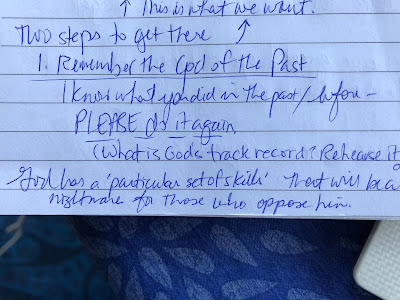 ↑ This is what we want.
Two steps to get there ↑
1. Remember the God of the Past
I know what you did in the past/before –
PLEASE do it again
(What is God's track record? Rehearse it)
God has a 'particular set of skills' that will be a
nightmare for those who oppose him.